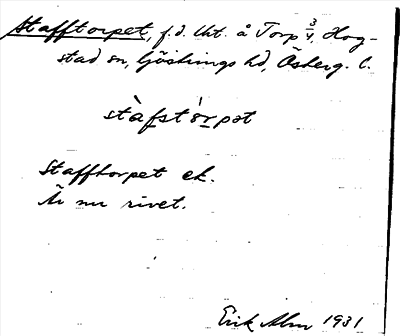 Stafftorpet, f.d. lht. å Torp 3/4, Hog-
stad sn, Göstrings hd, Österg. l.
stàfstórpət
Stafftorpet ek.
Är nu rivet.
Erik Alm 1931